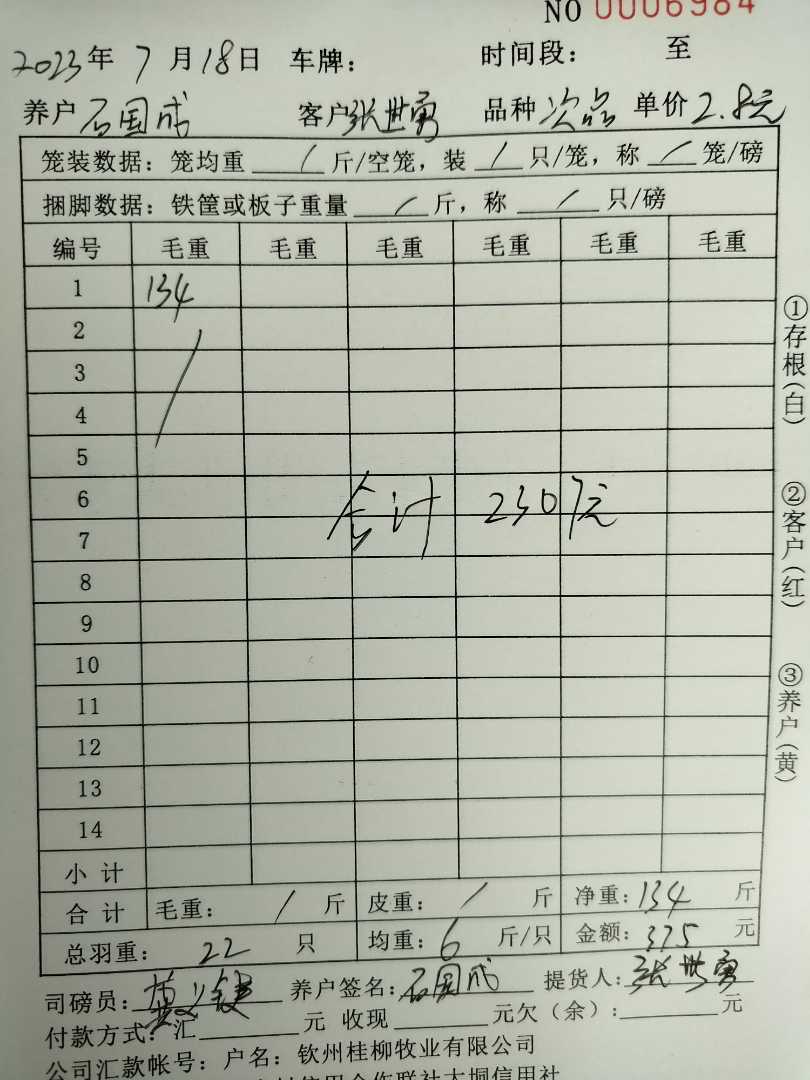 NO 0006984
2023年 7 月 18 日 车牌： 时间段： 至
养户 石国成 客户 张世勇 品种 次品 单价 2.8元
笼装数据：笼均重 / 斤/空笼，装 / 只/笼，称 / 笼/磅
捆脚数据：铁筐或板子重量 / 斤，称 / 只/磅
编号 毛重 毛重 毛重 毛重 毛重 毛重
1 134
2
3
4
5
6
合计 2307元
7
8
9
10
11
12
13
14
小 计
合 计 毛重： / 斤 皮重： / 斤 净重：134 斤
总羽重： 22 只 均重：6 斤/只 金额：375 元
司磅员： 养户签名：石国成 提货人：张世勇
付款方式：汇 元 收现 元欠（余）： 元
公司汇款帐号：户名：钦州桂柳牧业有限公司
信用合作联社大垌信用社
①存根（白）
②客户（红）
③养户（黄）